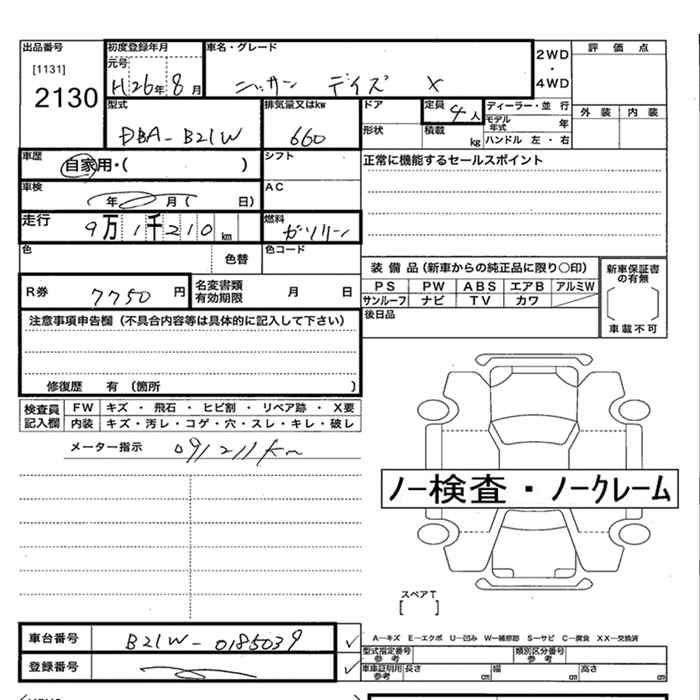 出品番号
[1131]
2130
初度登録年月
元号
H26年 8月
車名・グレード
ニッサン デイズ X
2WD
・
4WD
評価点
外装 内装
型式
DBA-B21W
排気量又はkw
660
ドア
形状
定員
4人
積載 kg
ディーラー・並行
モデル年式 年
ハンドル 左・右
車歴
自家用・( )
シフト
正常に機能するセールスポイント
車検
年 月( 日)
AC
走行
9万1千210km
燃料
ガソリン
色
色替
色コード
R券
7750円
名変書類
有効期限
月 日
装備品(新車からの純正品に限り○印)
PS PW ABS エアB アルミW
サンルーフ ナビ TV カワ
後日品
新車保証書
の有無
車載不可
注意事項申告欄(不具合内容等は具体的に記入して下さい)
修復歴 有(箇所 )
検査員
記入欄
FW キズ・飛石・ヒビ割・リペア跡・X要
内装 キズ・汚レ・コゲ・穴・スレ・キレ・破レ
メーター指示 091211km
ノー検査・ノークレーム
スペアT
[ ]
車台番号
B21W-0185039
登録番号
A-キズ E-エクボ U-凹み W-補修跡 S-サビ C-腐食 XX-交換済
型式指定番号
参考
類別区分番号
参考
車庫証明用
参考
長さ cm 幅 cm 高さ cm